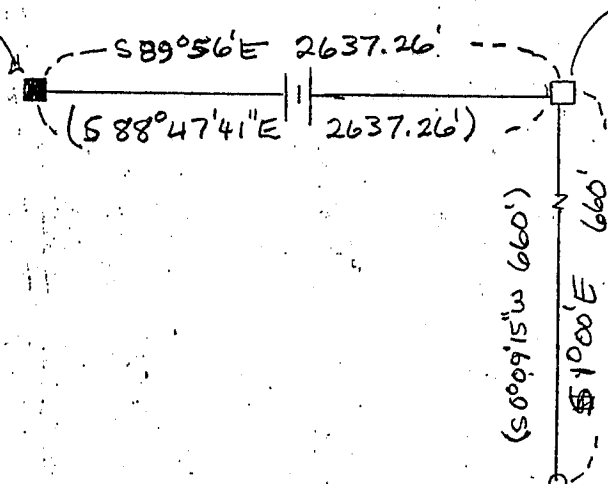 S89°56'E 2637.26'
(S 88°47'41"E 2637.26')
(S0°09'15"W 660')
S1°00'E 660'